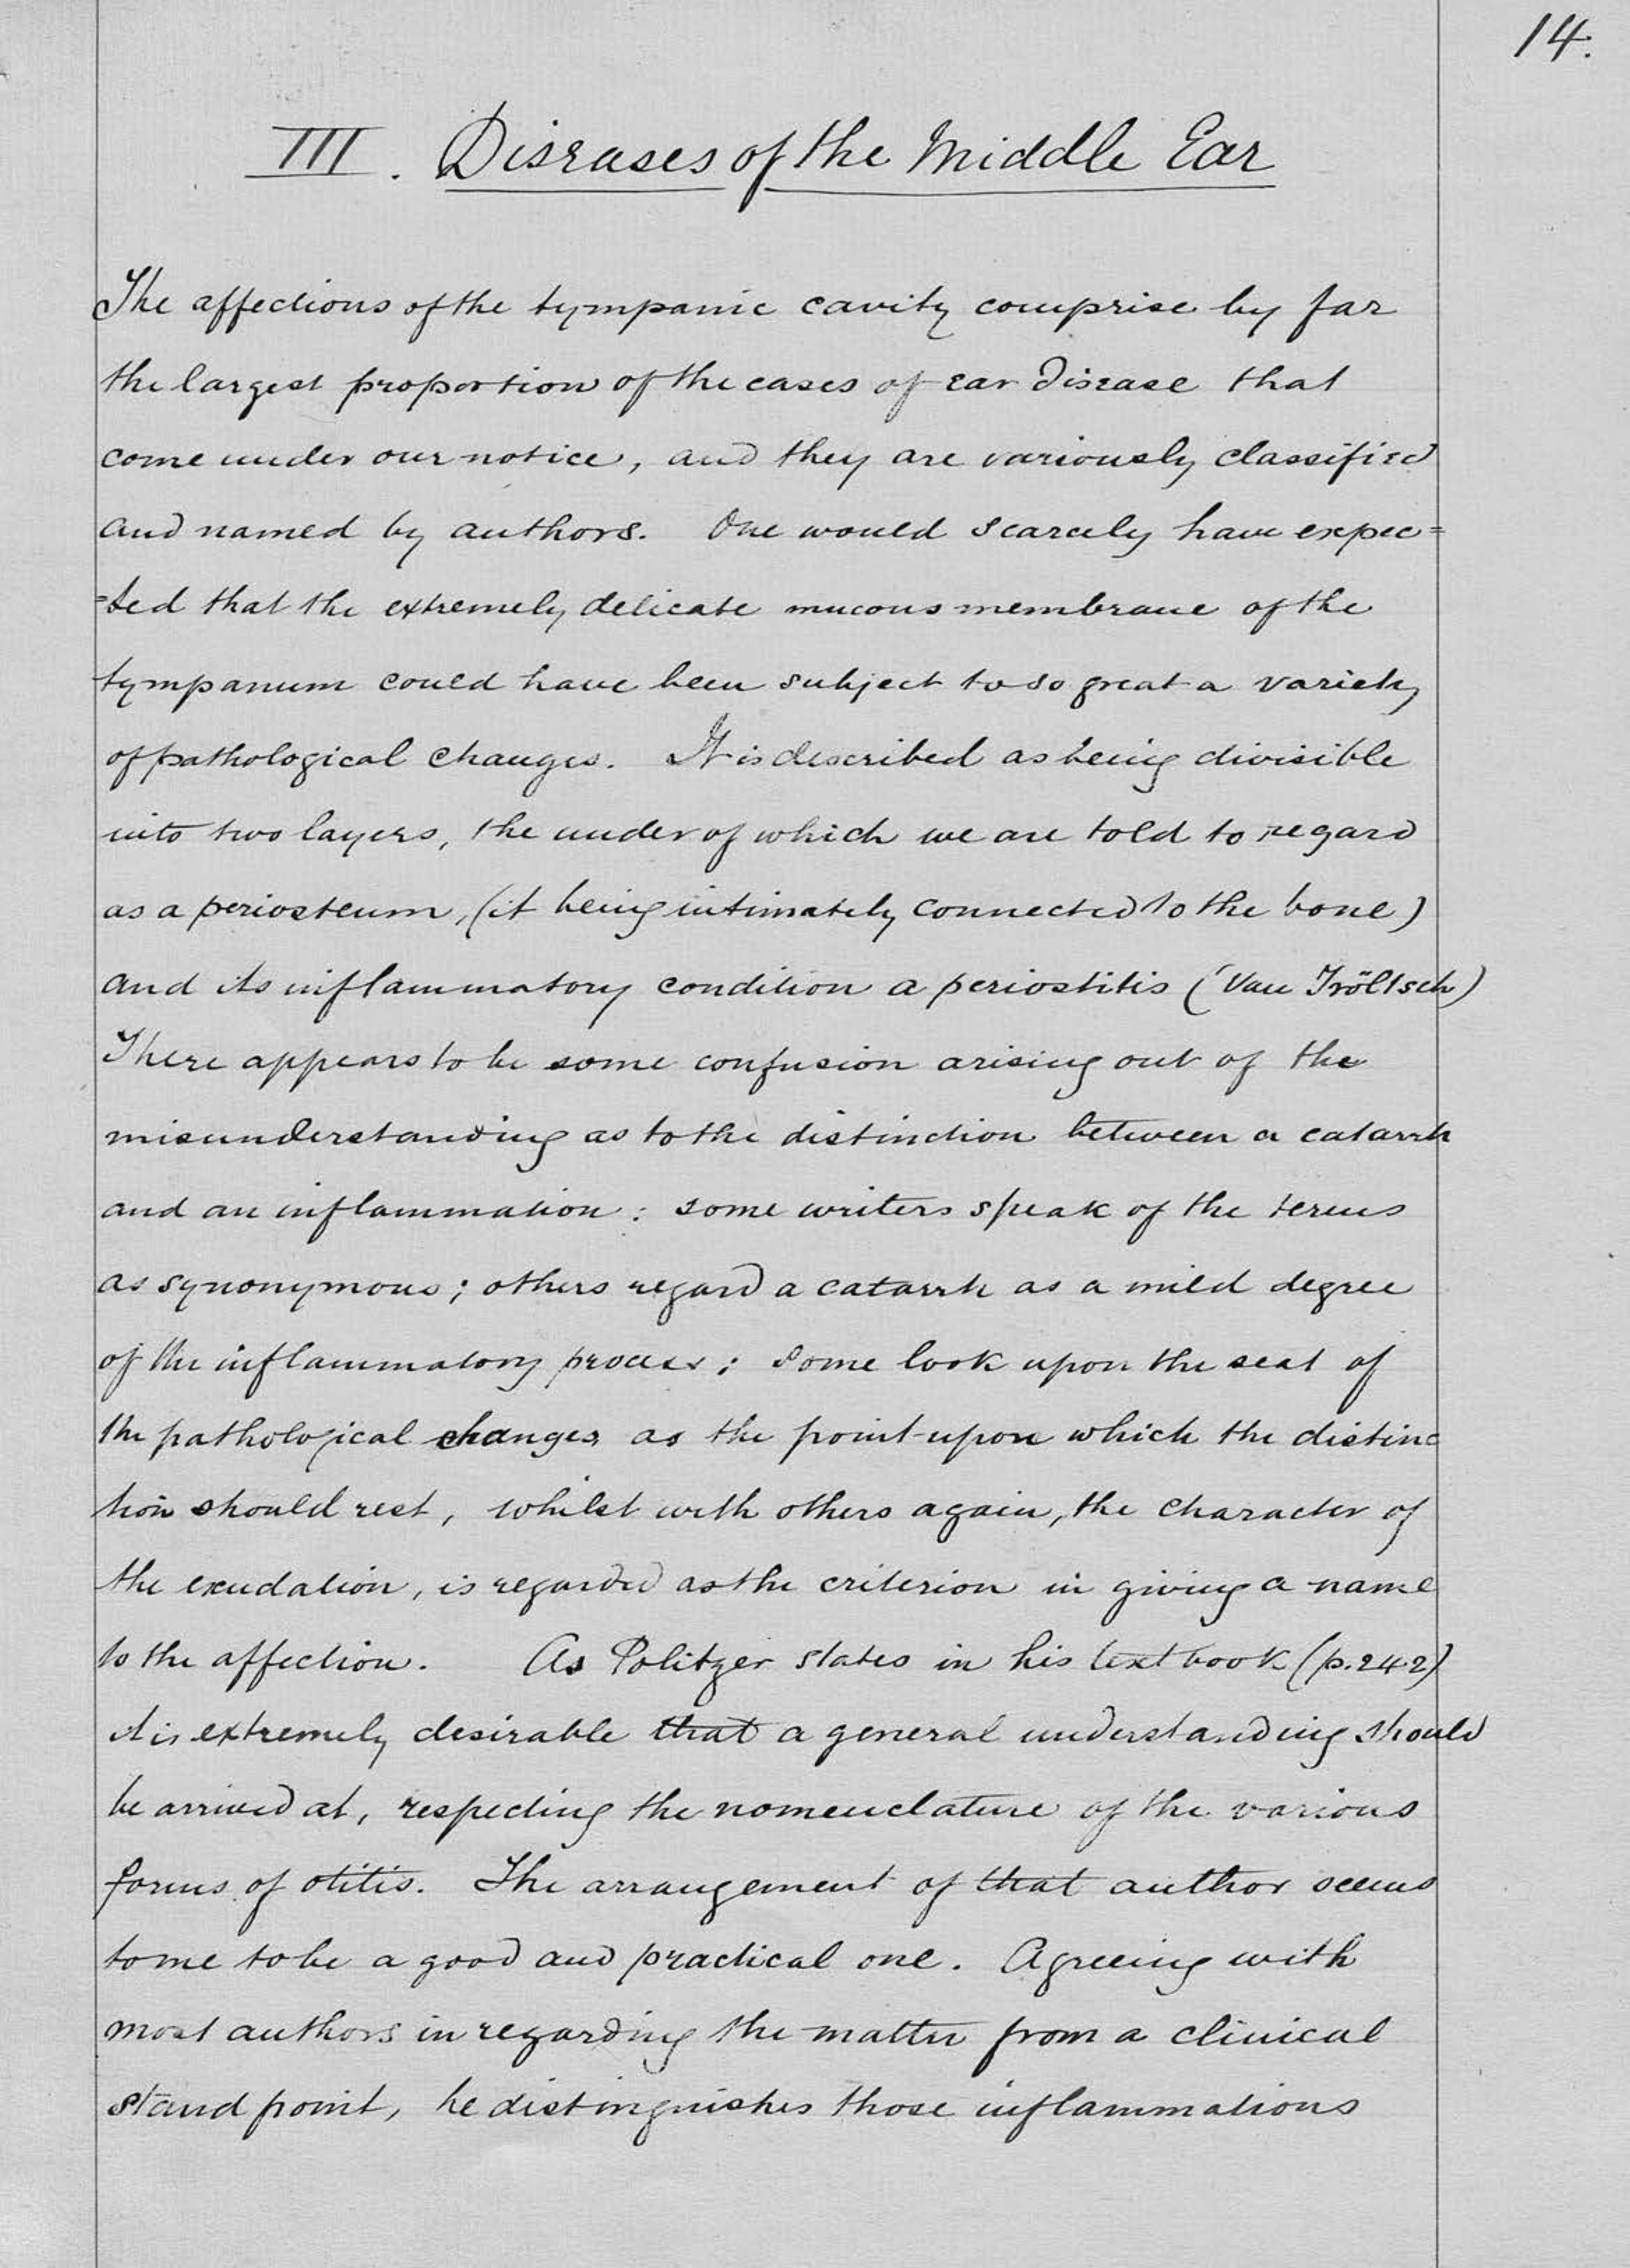 14.
III. Diseases of the Middle Ear
The affections of the tympanic cavity comprise by far
the largest proportion of the cases of ear disease that
come under our notice, and they are variously classified
and named by authors. One would scarcely have expec=
=ted that the extremely delicate mucous membrane of the
tympanum could have been subject to so great a variety
of pathological changes. It is described as being divisible
into two layers, the under of which we are told to regard
as a periosteum, (it being intimately connected to the bone)
and its inflammatory condition a periostitis (Van Tröltsch)
There appears to be some confusion arising out of the
misunderstanding as to the distinction between a catarrh
and an inflammation: some writers speak of the terms
as synonymous; others regard a catarrh as a mild degree
of the inflammatory process; some look upon the seat of
the pathological changes as the point upon which the distinc
tion should rest, whilst with others again, the character of
the exudation, is regarded as the criterion in giving a name
to the affection. As Politzer states in his text book (p.242)
it is extremely desirable that a general understanding should
be arrived at, respecting the nomenclature of the various
forms of otitis. The arrangement of that author seems
to me to be a good and practical one. Agreeing with
most authors in regarding the matter from a clinical
stand point, he distinguishes those inflammations